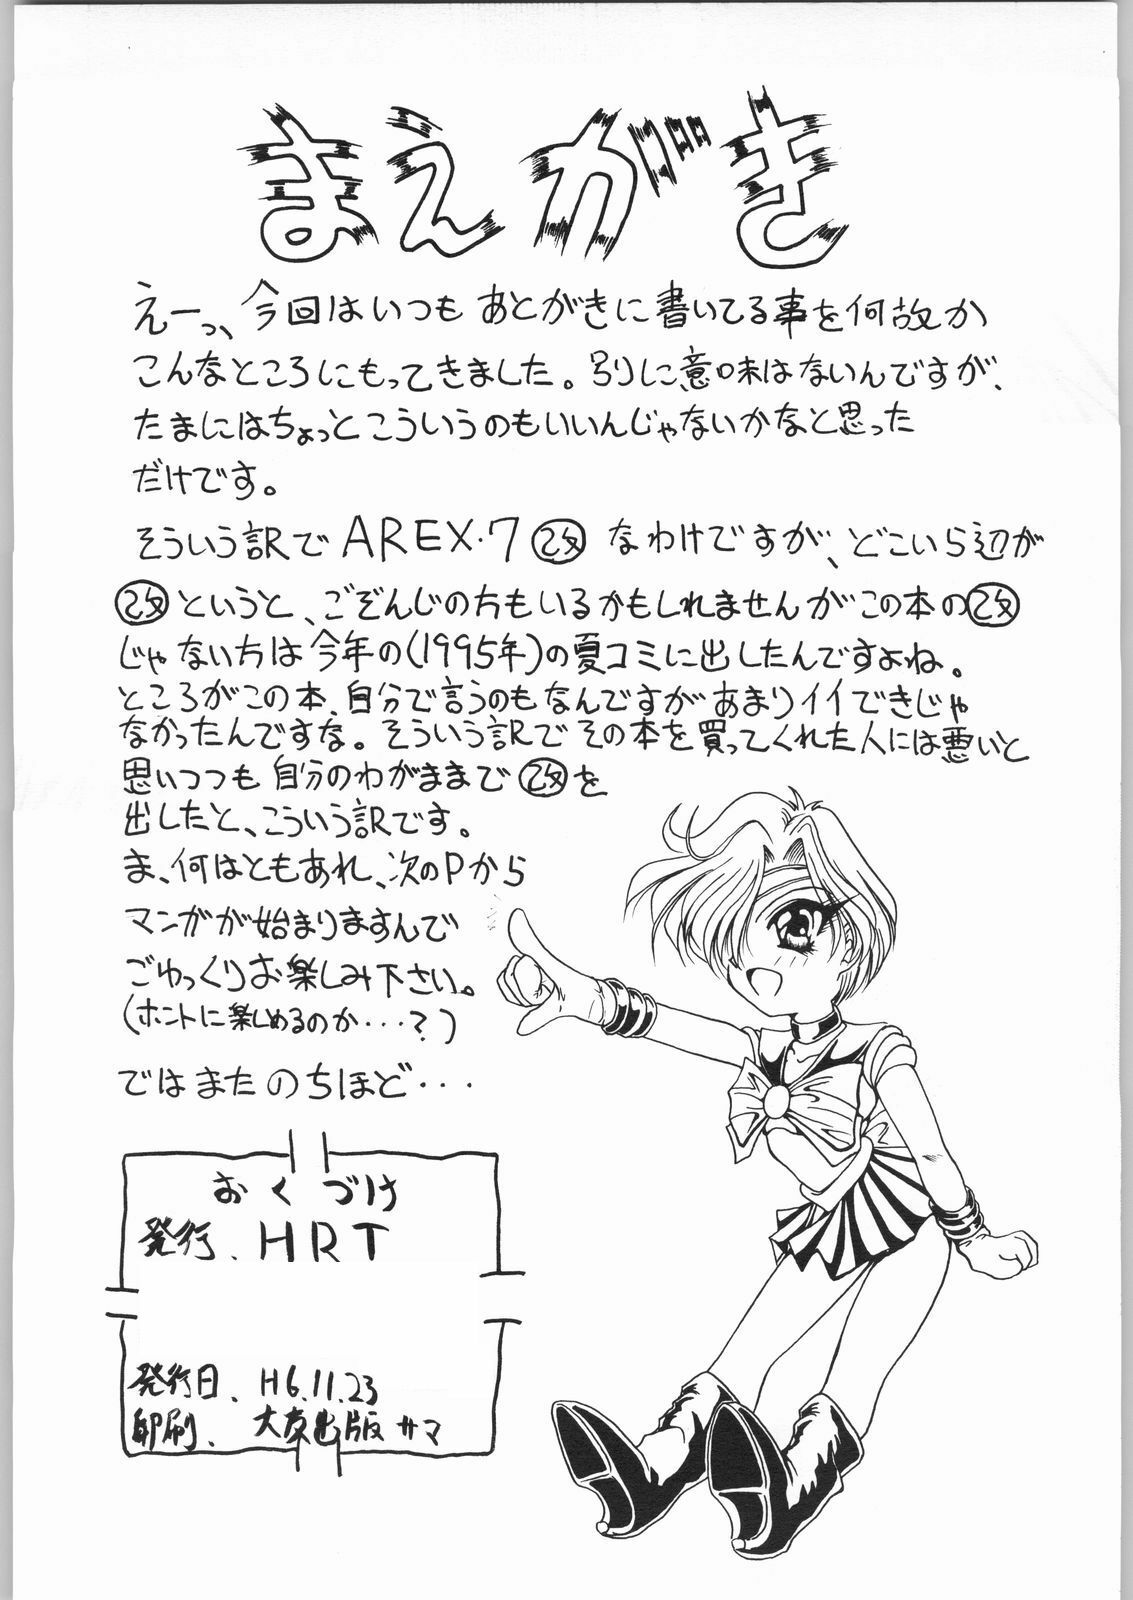 まえがき
えーっ、今回はいつもあとがきに書いてる事を何故か
こんなところにもってきました。別に意味はないんですが、
たまにはちょっとこういうのもいいんじゃないかなと思った
だけです。
そういう訳でAREX・7 改 なわけですが、どこいら辺が
改というと、ごぞんじの方もいるかもしれませんがこの本の改
じゃない方は今年の(1995年)の夏コミに出したんですよね。
ところがこの本、自分で言うのもなんですがあまりイイできじゃ
なかったんですな。そういう訳でその本を買ってくれた人には悪いと
思いつつも自分のわがままで改を
出したと、こういう訳です。
ま、何はともあれ、次のPから
マンガが始まりますんで
ごゆっくりお楽しみ下さい。
(ホントに楽しめるのか・・・?)
ではまたのちほど・・・
おくづけ
発行.HRT
発行日.H6.11.23
印刷.大友出版サマ